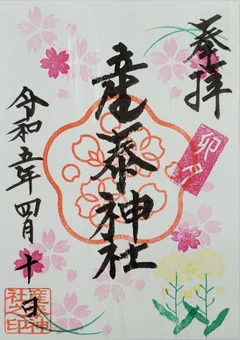 奉拝
卯月
産泰神社
令和五年四月十日
産泰神社之印